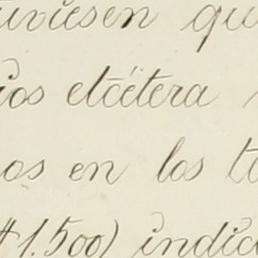 uviesen qu
ios etcétera
os en los t
$1.500) indic